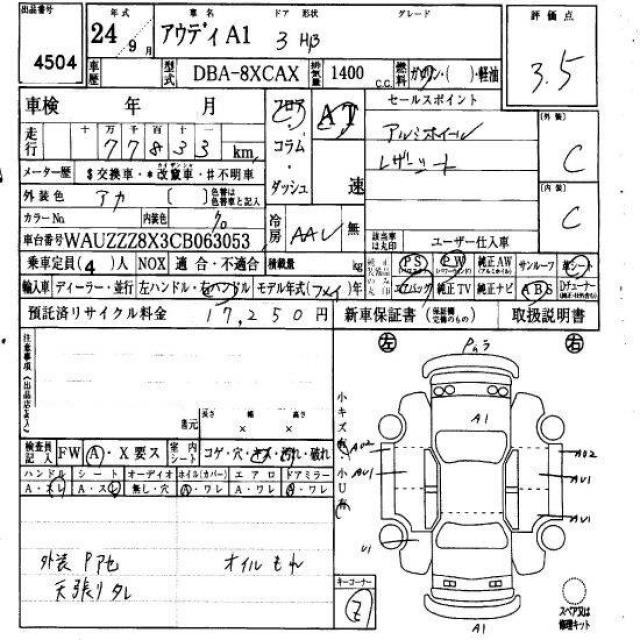 出品番号 年式 車名 ドア 形状 グレード 評価点
4504 24 9月 アウディA1 3 HB 3.5
車歴 型式 DBA-8XCAX 排気量 1400 c.c. 燃料 ガソリン・( )・軽油
車検 年 月 フロア・コラム・ダッシュ AT 速 セールスポイント
アルミホイール
レザーシート
[外装] C
[内装] C
走行 十 万 千 百 十 一
77833 km
メーター歴 $交換車・*改竄車・#不明車
外装色 アカ [ ] 色替は色替車と記入
カラーNo. 内装色 クロ 冷房 AAC 無
車台番号 WAUZZZ8X3CB063053 該当車は丸印 ユーザー仕入車
乗車定員(4)人 NOX 適合・不適合 積載量 kg PS PW 純正AW サンルーフ 革シート
輸入車 ディーラー・並行 左ハンドル・右ハンドル モデル年式( )年 エアバッグ 純正TV 純正ナビ ABS Dチューナー
預託済リサイクル料金 17,250円 新車保証書 (保証書完備のもの) 取扱説明書
注意事項(出品店記入)
左 右
小キズ有 小U有
A1
AU2 AU2
AU1 AU1
AU1
U1
A1
復元 長さ × 幅 × 高さ
検査員記入 FW A・X要ス 室内シート コゲ・穴・キズ・汚れ・破れ
ハンドル シート オーディオ ホイル(カバー) エアロ ドアミラー
A・スレ A・スレ 無し・穴 A・ワレ A・ワレ A・ワレ
外装 P オイルもれ
天張りタレ
キーコーナー
Z
スペア又は修理キット